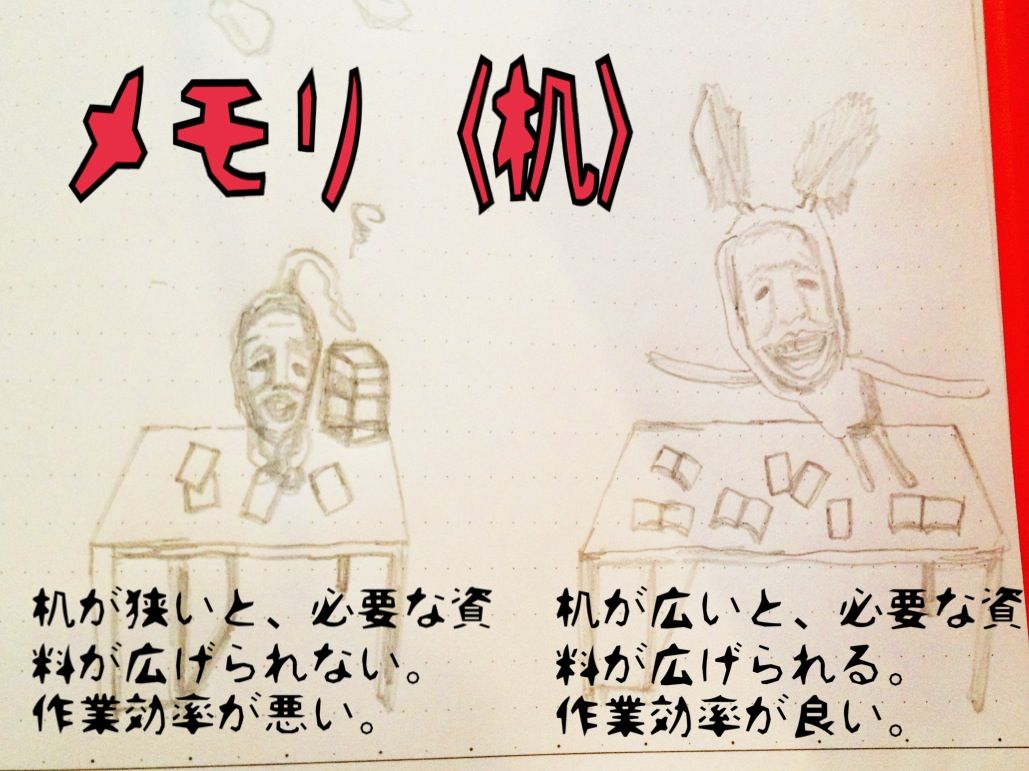 メモリ（机）
机が狭いと、必要な資
料が広げられない。
作業効率が悪い。
机が広いと、必要な資
料が広げられる。
作業効率が良い。